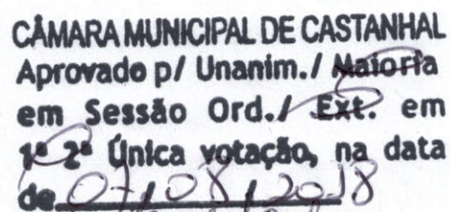 CÂMARA MUNICIPAL DE CASTANHAL
Aprovado p/ Unanim./ Maioria
em Sessão Ord./ Ext. em
1ª 2ª Única votação, na data
de 07/08/2018